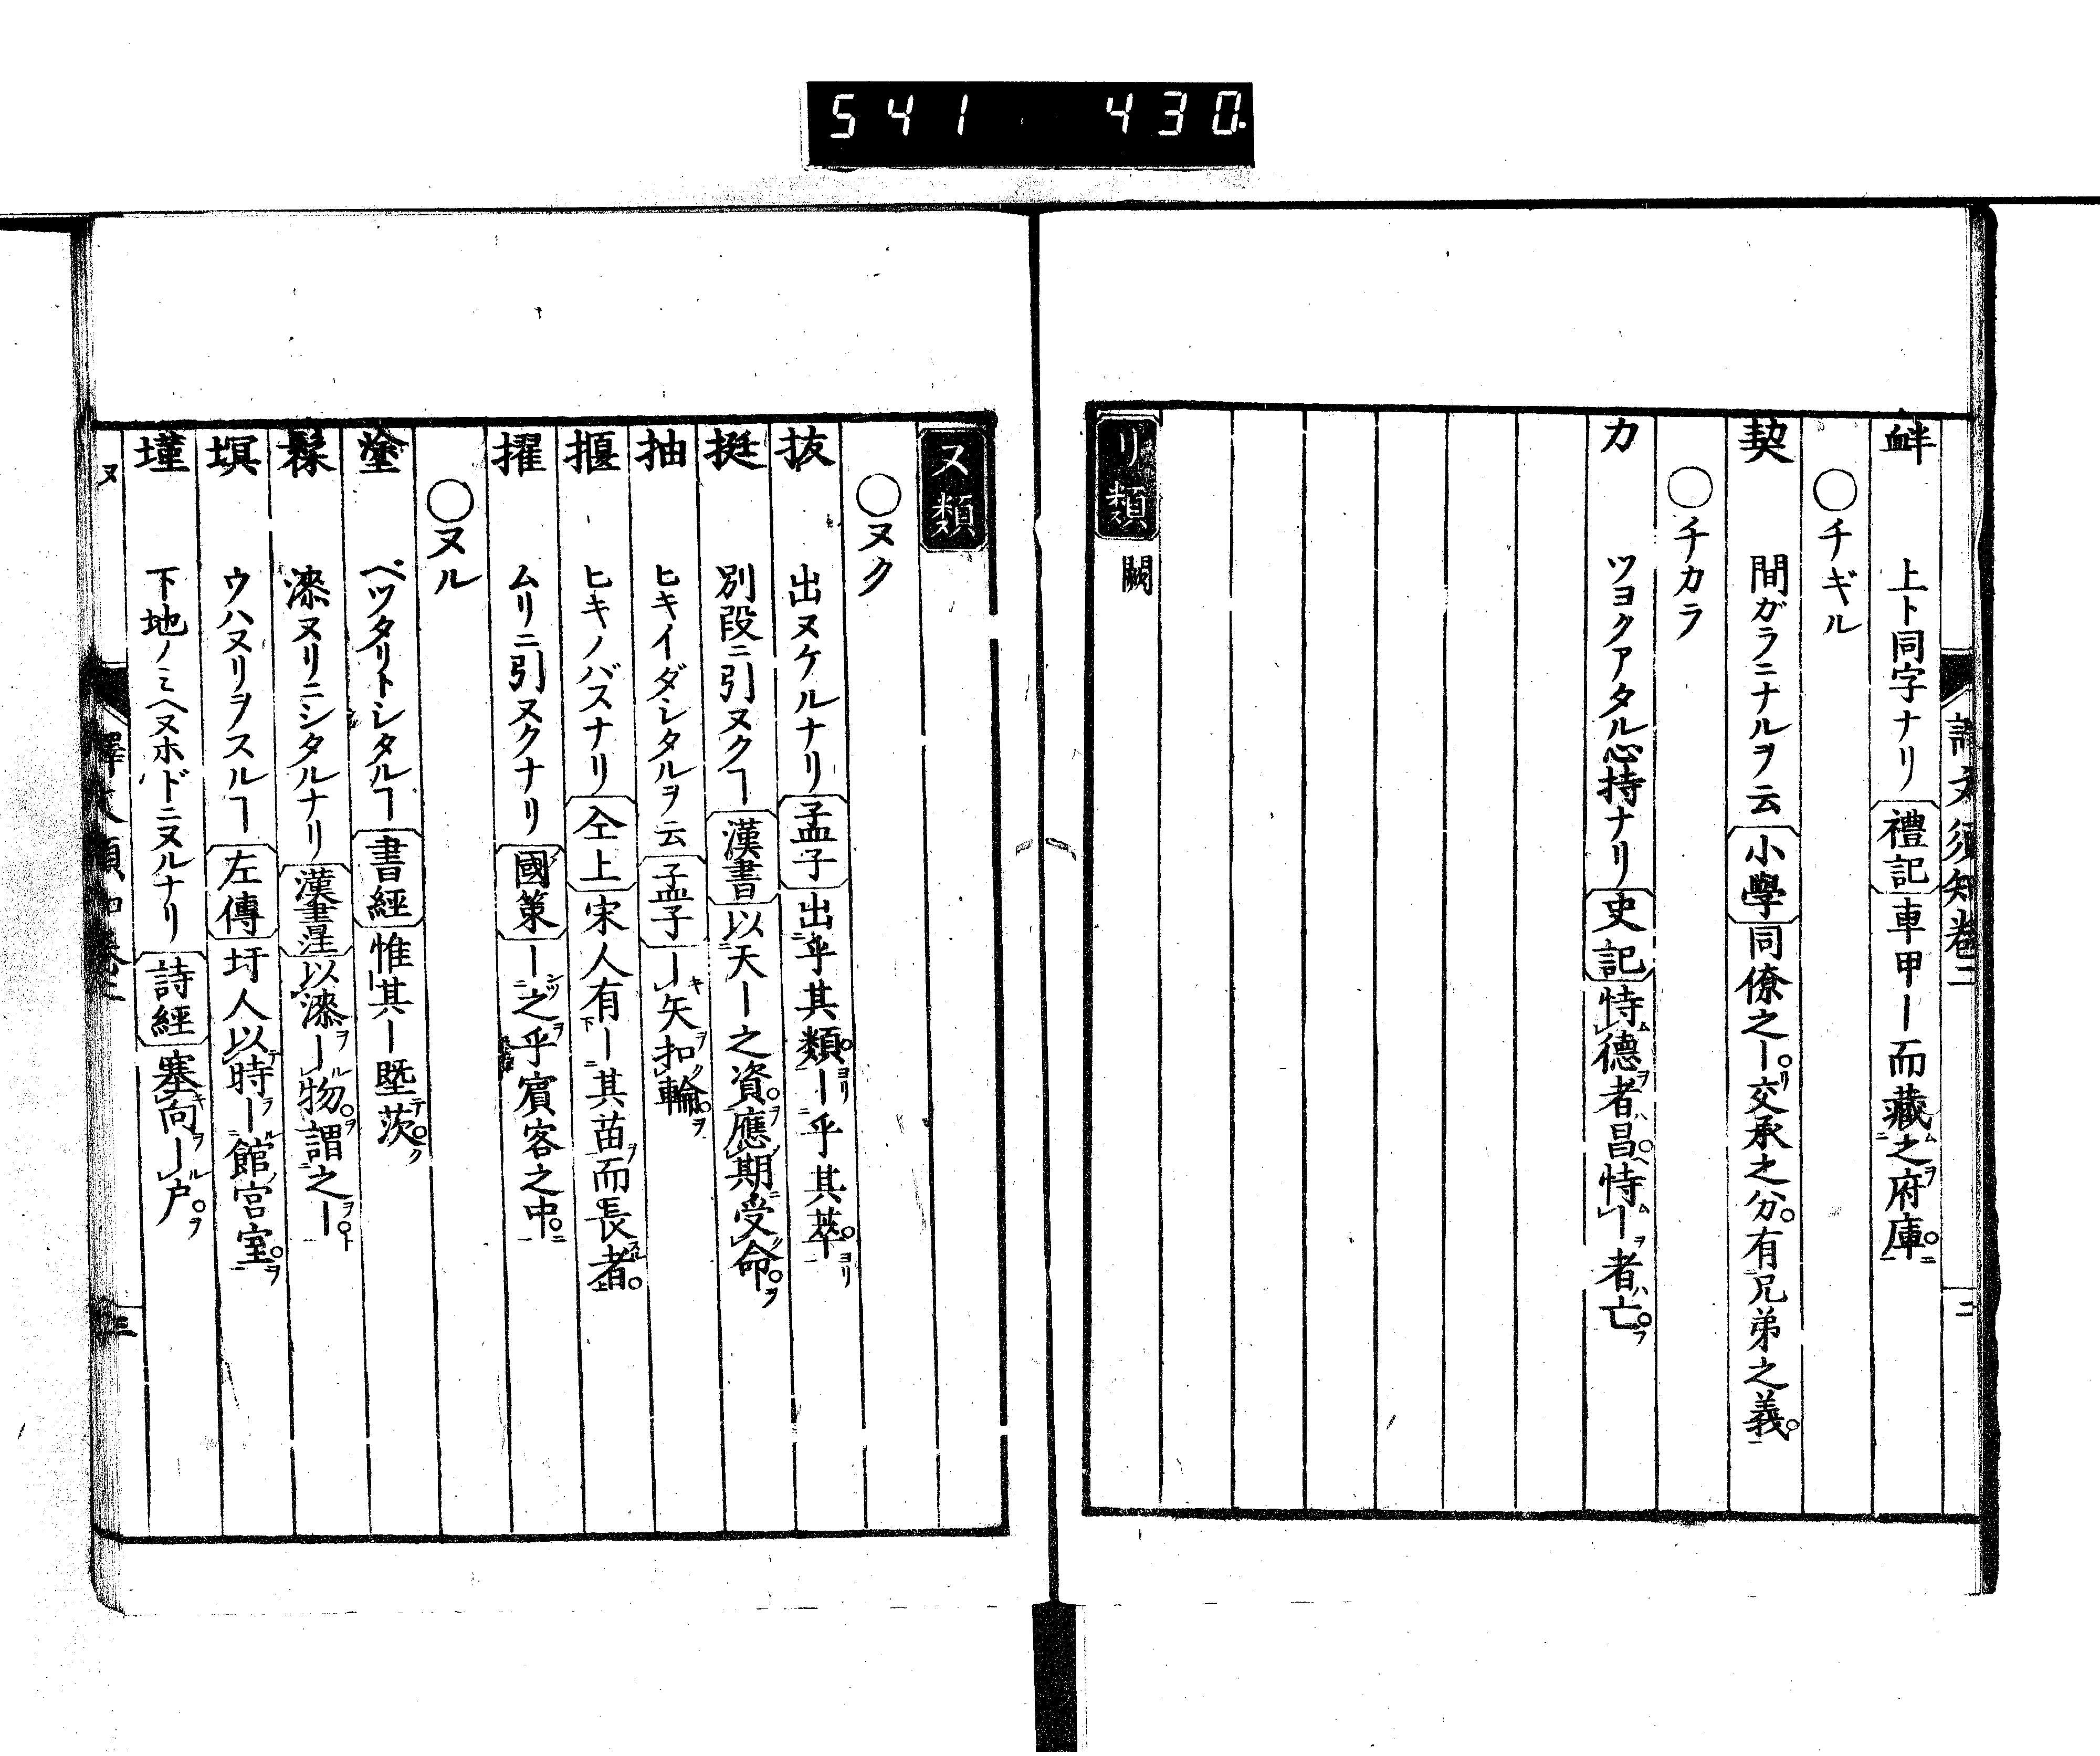 541 430
譯文須知卷二
二
衅 上ト同字ナリ 禮記 車甲ー而藏之府庫
○チギル
契 間ガラニナルヲ云 小學 同僚之ー交承之分有兄弟之義
○チカラ
力 ツヨクアタル心持ナリ 史記 恃德者昌恃ー者亡
リ類 闕
ヌ類
○ヌク
抜 出ヌケルナリ 孟子 出乎其類ー乎其萃
挺 別段ニ引ヌクヿ 漢書 以天ー之資應期受命
抽 ヒキイダシタルヲ云 孟子 ー矢扣輪
揠 ヒキノバスナリ 仝上 宋人有ー其苗而長者
擢 ムリニ引ヌクナリ 國策 ー之乎賓客之中
○ヌル
塗 ベツタリトシタルヿ 書經 惟其ー墍茨
髹 漆ヌリニシタルナリ 漢書 以漆ー物謂之ー
塓 ウハヌリヲスルヿ 左傳 圬人以時ー館宮室
墐 下地ノミヘヌホドニヌルナリ 詩經 塞向ー戸
ヌ
三